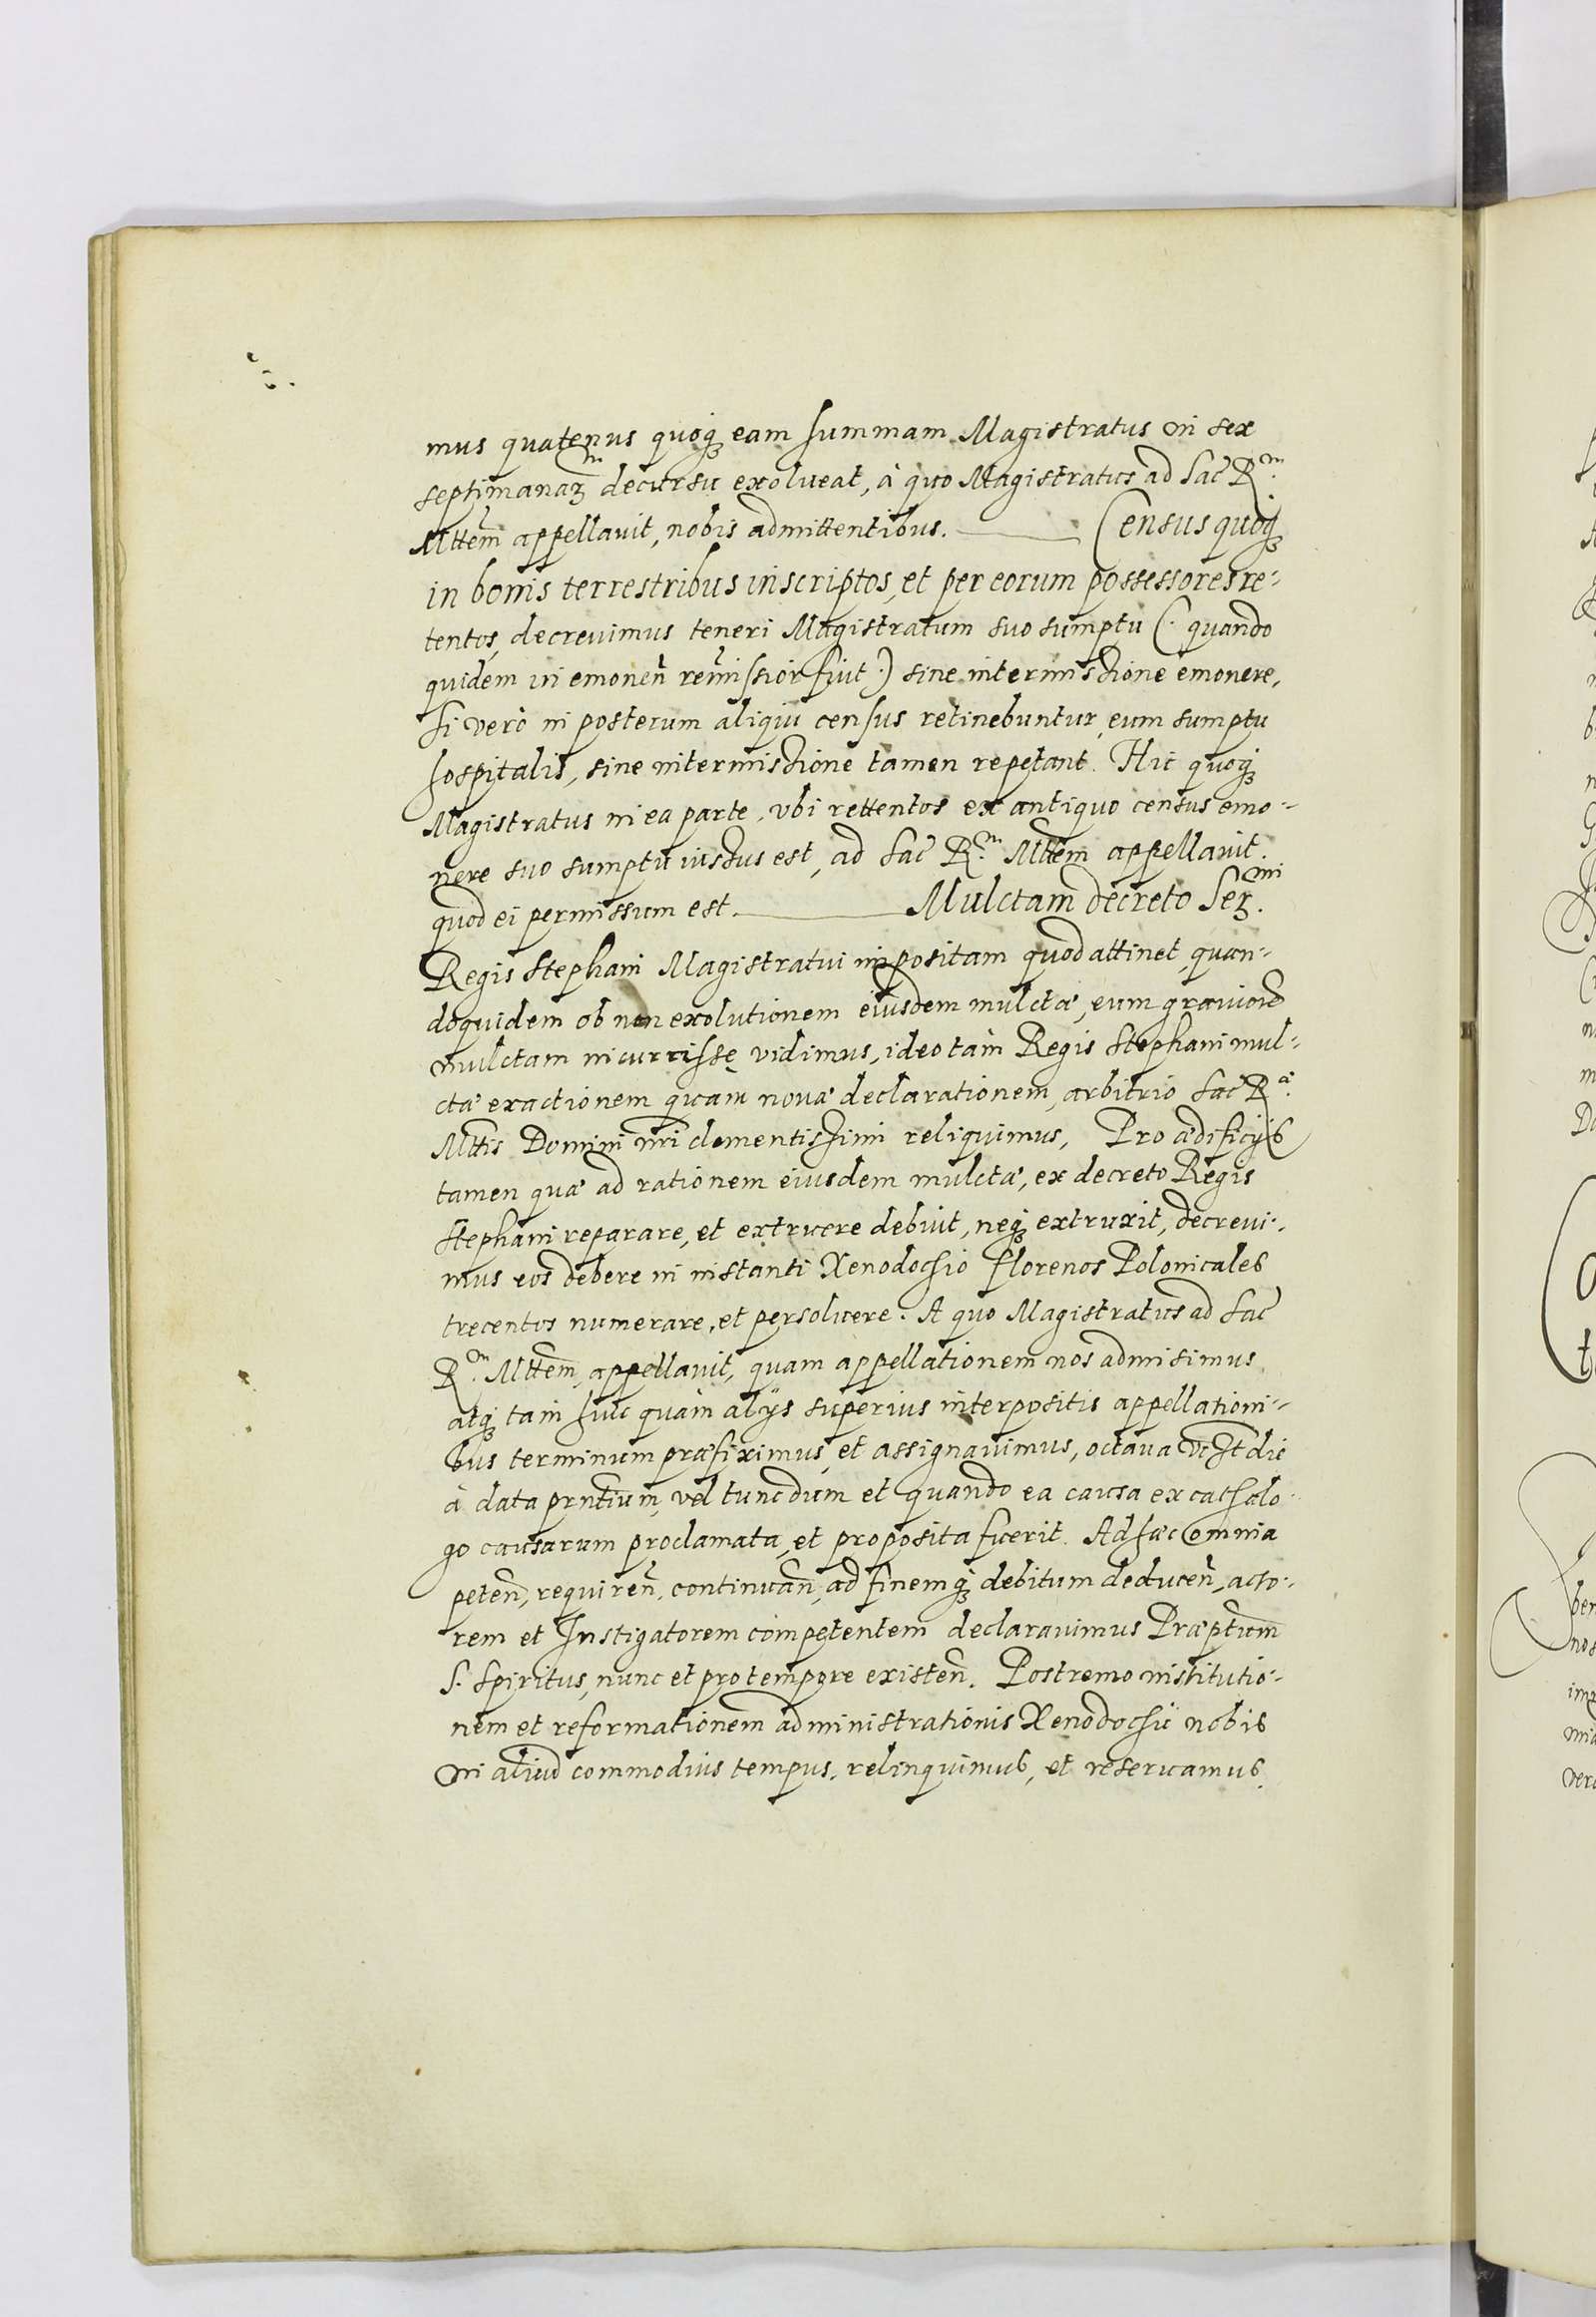 mus quatenus quoq₃ eam summam Magistratus in sex
septimanaꝝ m decursu exolueat, à quo Magistratus ad Sac R.m
Mttem appellauit, nobis admittentibus. —— Census quoq₃
in bonis terrestribus inscriptos, et per eorum possessores re-
tentos, decreuimus teneri Magistratum suo sumptu (quando
quidem in emonen̄ remissior fuit) sine intermissione emonere,
Si verò in posterum aliqui census retinebuntur, eum sumptu
hospitalis, sine intermissione tamen repetant. Hic quoq₃
Magistratus in ea parte, vbi rettentos ex antiquo census emo-
nere suo sumptu iussus est, ad Sac R.m Mttem appellauit.
quod ei permissum est. —— Mulctam decreto Ser.mi
Regis Stephani Magistratui impositam quod attinet, quan-
doquidem ob non exolutionem eiusdem mulctæ, eum grauiorē
mulctam incurrisse vidimus, ideo tàm Regis Stephani mul-
ctæ exactionem quàm nouæ declarationem, arbitrio Sac R.æ
Mttis Domini nri clementissimi reliquimus, Pro ædificijs
tamen quæ ad rationem eiusdem mulctæ, ex decreto Regis
Stephani reparare, et extruere debuit, neq₃ extruxit, decreui-
mus eos debere in instanti Xenodochio florenos Polonicales
trecentos numerare, et persoluere. A quo Magistratus ad Sac
R.m Mttem appellauit, quam appellationem nos admisimus
atq₃ tam huic quàm alijs superius interpositis appellationi-
bus terminum præfiximus, et assignauimus, octaua die
à data prntium, vel tunc dum et quando ea causa ex cathalo-
go causarum proclamata, et proposita fuerit. Ad hæc omnia
peten̄, requiren̄, continuan̄, ad finemq₃ debitum deducen̄, acto-
rem et Instigatorem competentem declarauimus Præptum
S. Spiritus, nunc et pro tempore existen̄. Postremo institutio-
nem et reformationem administrationis Xenodochij nobis
in aliud commodius tempus, relinquimus, et reseruamus.